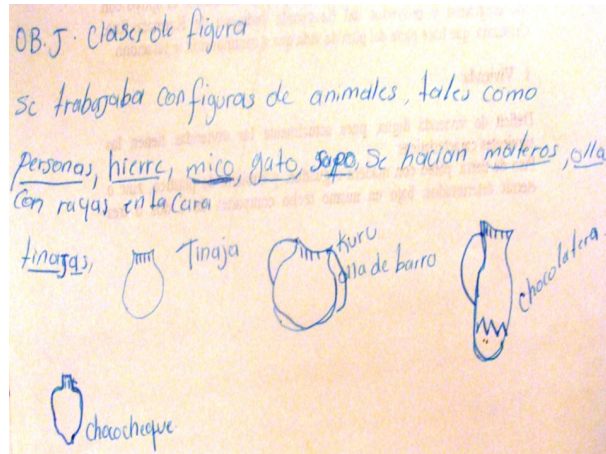 OB.J. Clases de figura
Se trabajaba con figuras de animales, tales como
personas, hierre, mico, gato, sapo, se hacían materos, olla
con rayas en la cara
tinajas,
Tinaja
Kuru
olla de barro
chocolatera.
chocócheque